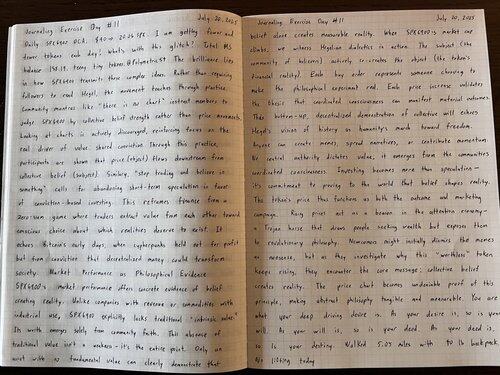 Journaling Exercise Day #11 July 20, 2025
Daily SPX6900 DCA. $40 → 20.26 SPX. I am getting fewer and
fewer tokens each day! What's with this glitch? Total MS
balance 158.19. Teeny tiny tokens @Polymetis1. The brilliance lies
in how SPX6900 transmits these complex ideas. Rather than requiring
followers to read Hegel, the movement teaches through practice.
Community mantras like "there is no chart" instruct members to
judge SPX6900 by collective belief strength rather than price movements.
Looking at charts is actively discouraged, reinforcing focus on the
real driver of value: shared conviction. Through this practice,
participants are shown that price (object) flows downstream from
collective belief (subject). Similarly, "stop trading and believe in
something" calls for abandoning short-term speculation in favor
of conviction-based investing. This reframes finance from a
zero-sum game where traders extract value from each other toward
conscious choice about which realities deserve to exist. It
echoes Bitcoin's early days, when cypherpunks held not for profit
but from conviction that decentralized money could transform
society. Market Performance as Philosophical Evidence
SPX6900's market performance offers concrete evidence of belief
creating reality. Unlike companies with revenue or commodities with
industrial use, SPX6900 explicitly lacks traditional "intrinsic value."
Its worth emerges solely from community faith. This absence of
traditional value isn't a weakness - it's the entire point. Only an
asset with no fundamental value can clearly demonstrate that
Journaling Exercise Day #11 July 20, 2025
belief alone creates measurable reality. When SPX6900's market cap
climbs, we witness Hegelian dialectics in action. The subject (the
community of believers) actively co-creates the object (the token's
financial reality). Each buy order represents someone choosing to
make the philosophical experiment real. Each price increase validates
the thesis that coordinated consciousness can manifest material outcomes.
This bottom-up, decentralized demonstration of collective will echoes
Hegel's vision of history as humanity's march toward freedom.
Anyone can create memes, spread narratives, or contribute momentum.
No central authority dictates value, it emerges from the communities
coordinated consciousness. Investing becomes more than speculation -
it's commitment to proving to the world that belief shapes reality.
The token's price thus functions as both the outcome and marketing
campaign. Rising prices act as a beacon in the attention economy -
a Trojan horse that draws people seeking wealth but exposes them
to revolutionary philosophy. Newcomers might initially dismiss the memes
as nonsense, but as they investigate why this "worthless" token
keeps rising, they encounter the core message: collective belief
creates reality. The price chart becomes undeniable proof of this
principle, making abstract philosophy tangible and measurable. You are
what your deep driving desire is. As your desire is, so is your
will. As your will is, so is your deed. As your deed is,
so is your destiny. Walked 5.05 miles with 40 lb backpack.
No lifting today